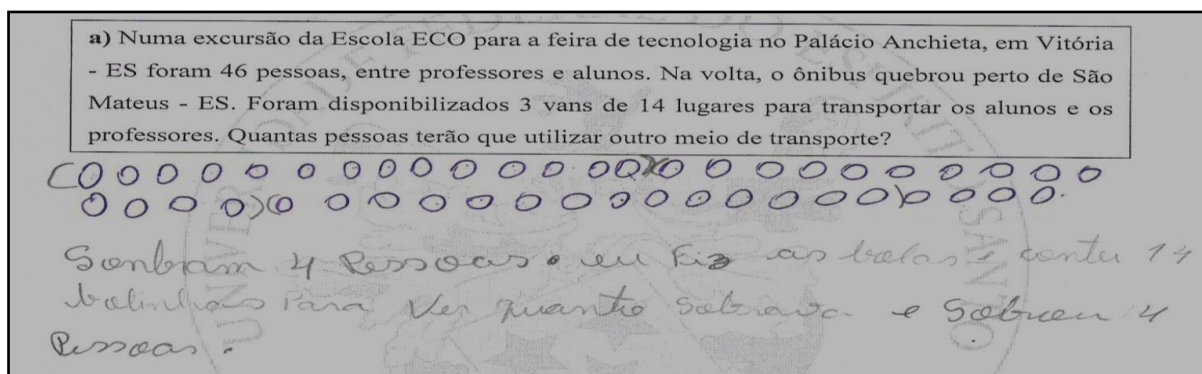 a) Numa excursão da Escola ECO para a feira de tecnologia no Palácio Anchieta, em Vitória
- ES foram 46 pessoas, entre professores e alunos. Na volta, o ônibus quebrou perto de São
Mateus - ES. Foram disponibilizados 3 vans de 14 lugares para transportar os alunos e os
professores. Quantas pessoas terão que utilizar outro meio de transporte?
4 Pessoas. eu Fiz as bolas e contei 14
bolinhas Para Ver quanto sobrava e Sobrou 4
Pessoas.